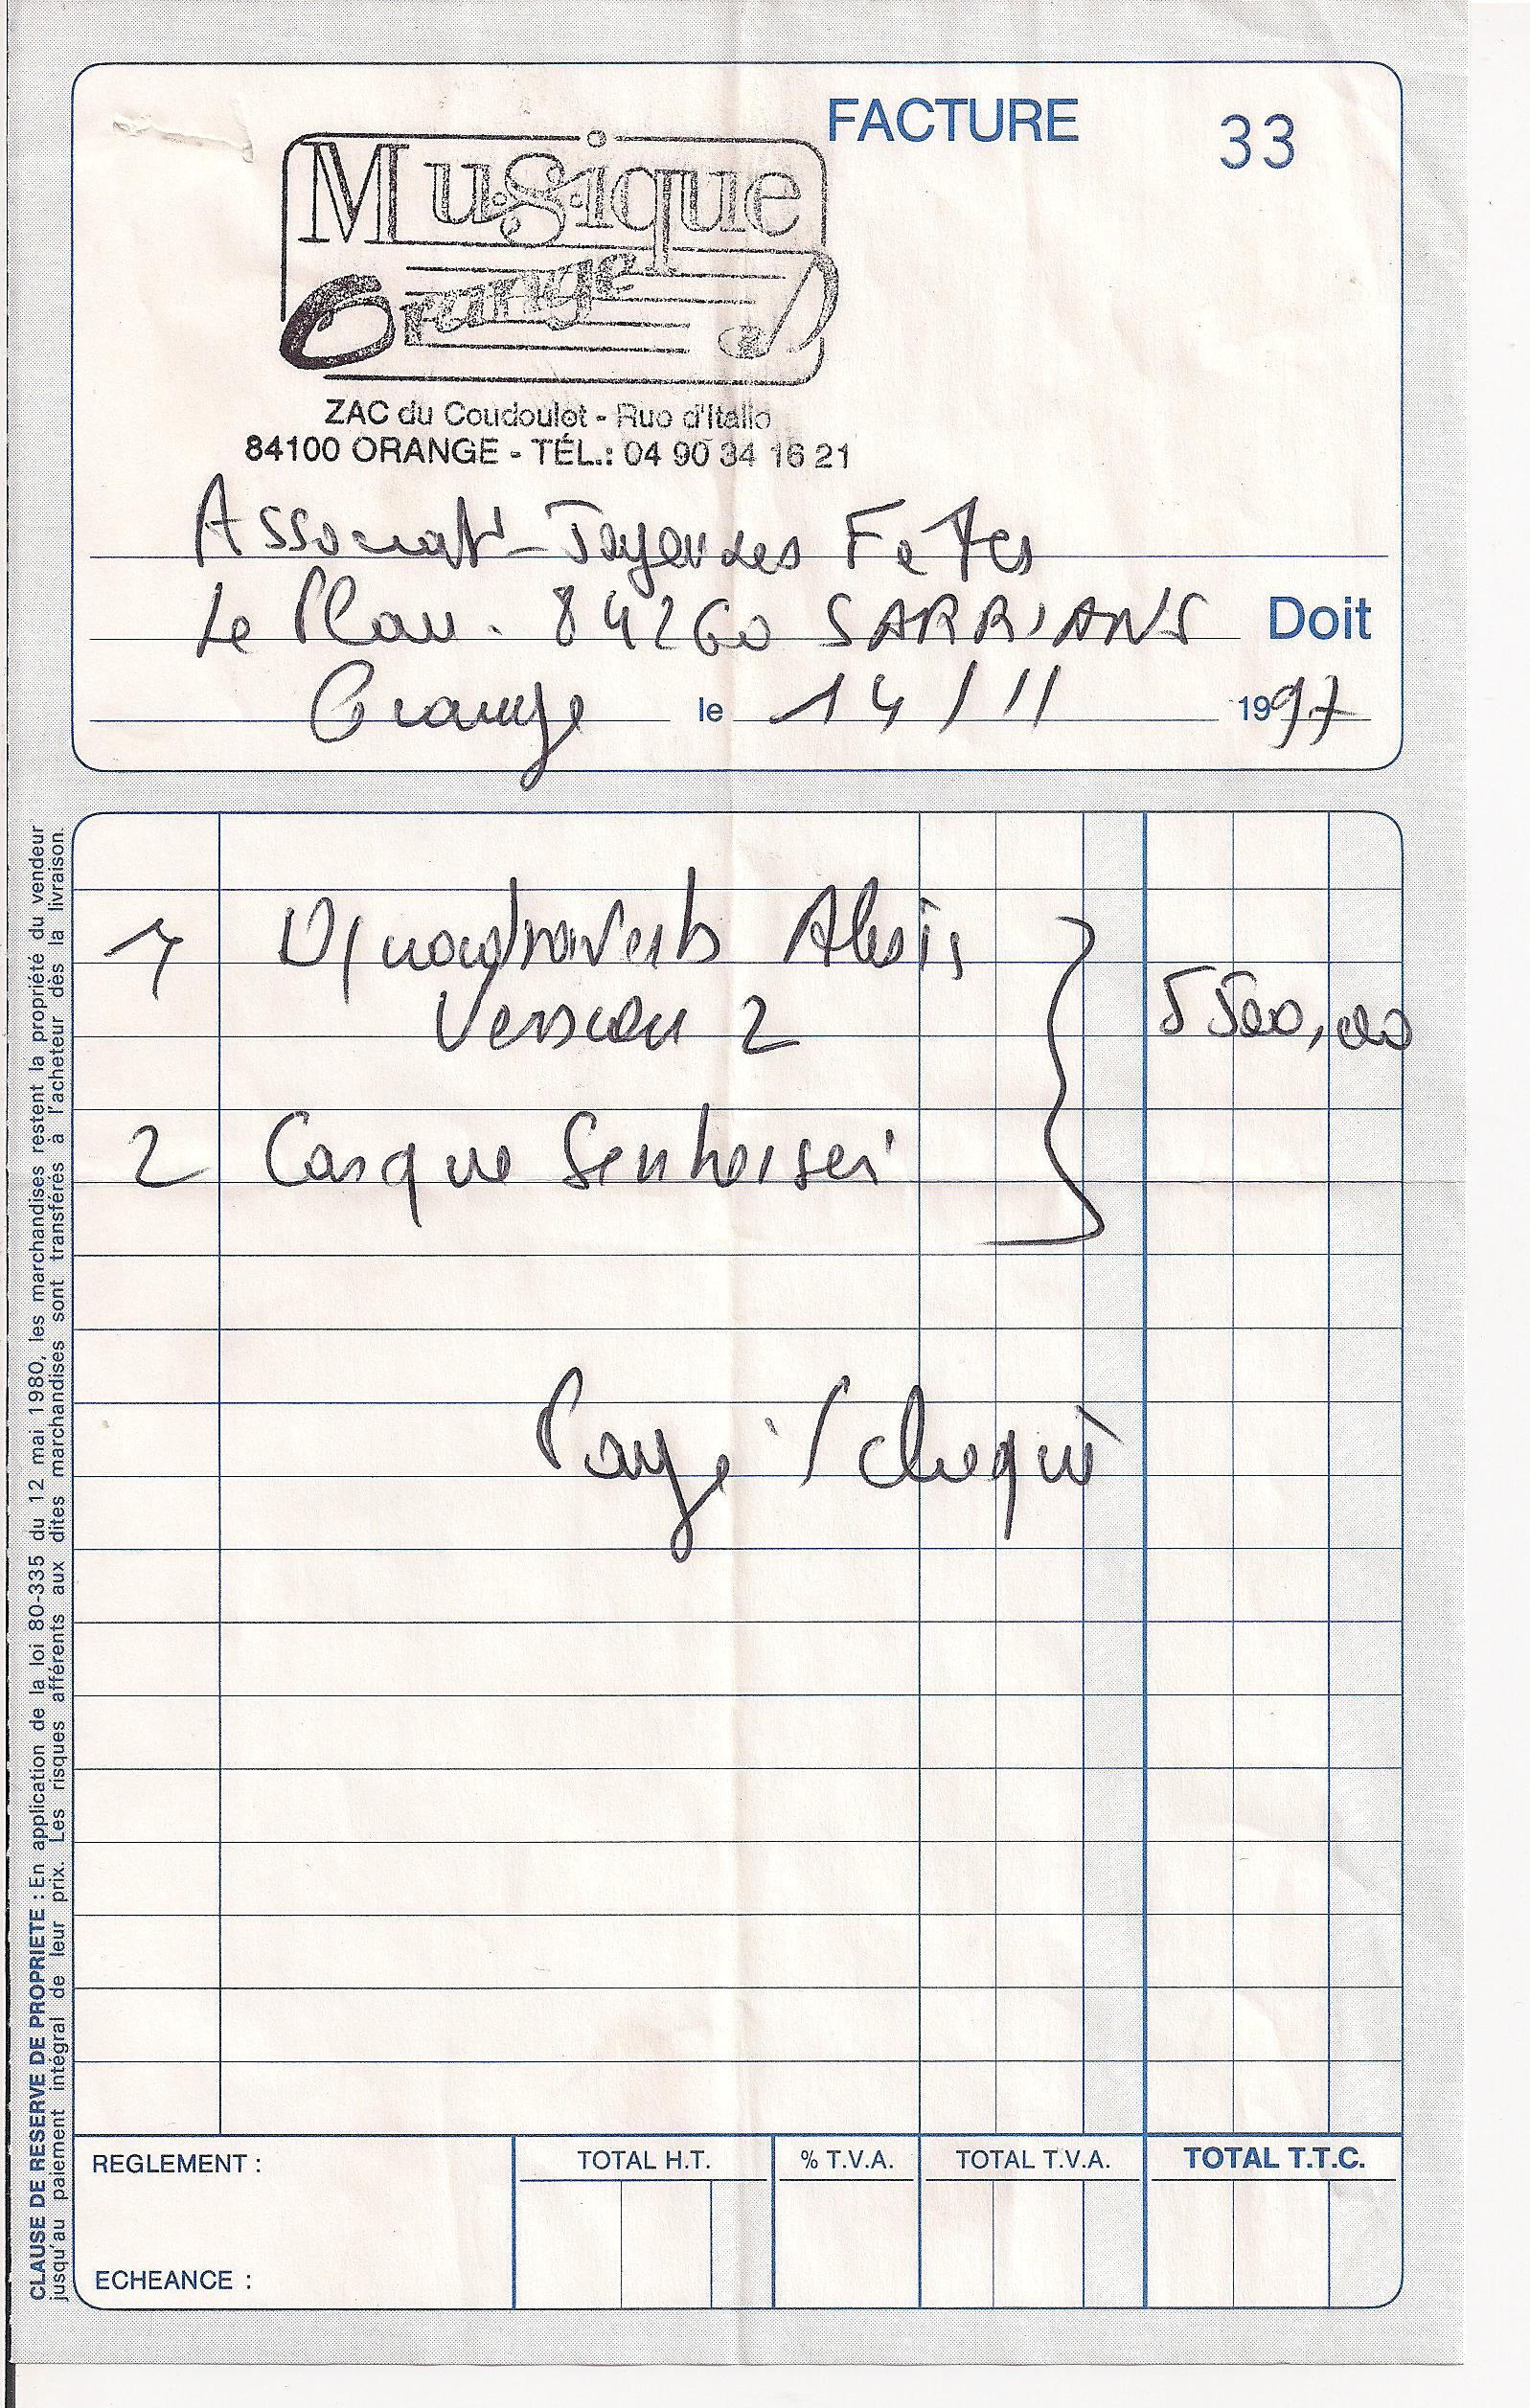 FACTURE 33
Musique
Orange
ZAC du Coudoulet - Rue d'Italie
84100 ORANGE - TÉL.: 04 90 34 16 21
Associat° - Joyeuses Fetes
Le Plan. 84260 SARRIANS Doit
Orange le 14 / 11 1997
1 Quadraverb Alesis
Version 2
5500,00
2 Casque Senheiser
Payé / cheque
REGLEMENT :
ECHEANCE :
TOTAL H.T. % T.V.A. TOTAL T.V.A. TOTAL T.T.C.
CLAUSE DE RESERVE DE PROPRIETE : En application de la loi 80-335 du 12 mai 1980, les marchandises restent la propriété du vendeur
jusqu'au paiement intégral de leur prix. Les risques afférents aux dites marchandises sont transférés à l'acheteur dès la livraison.